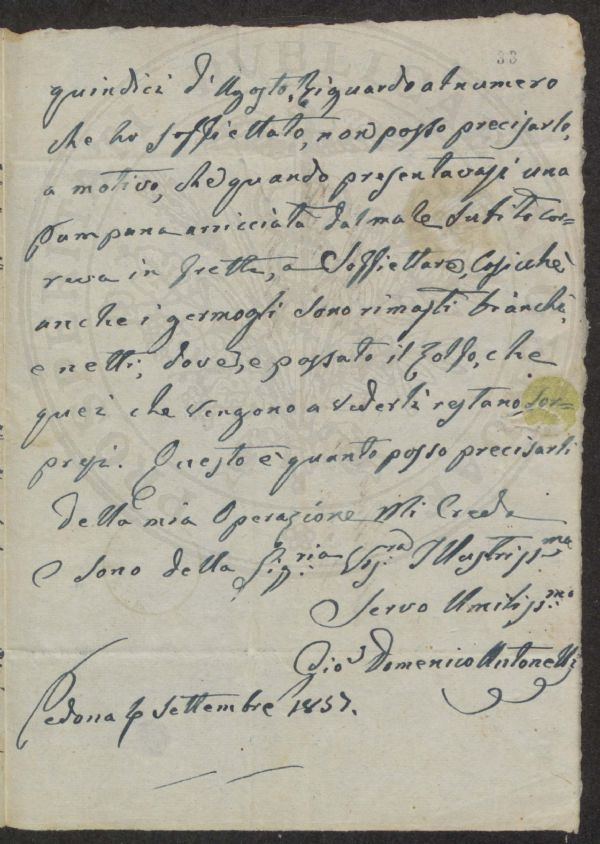 33
quindici d'Agosto, Riguardo al numero
che ho soffiettato, non posso precisarlo,
a motivo, che quando presentavasi una
Pampana arricciata dal male subito cor=
reva in fretta, a Soffiettare, Cosicchè
anche i germogli sono rimasti bianchi,
e netti, dove, e passato il Zolfo, che
quei che vengono a vederli restano Sor=
presi. Questo è quanto posso precisarli
della mia Operazione Mi Creda
e sono della Sig.ria Vos.ra Illustriss.ma
Servo Umiliss.mo
Gio: Domenico Antonelli
Pedona Settembre 1857.